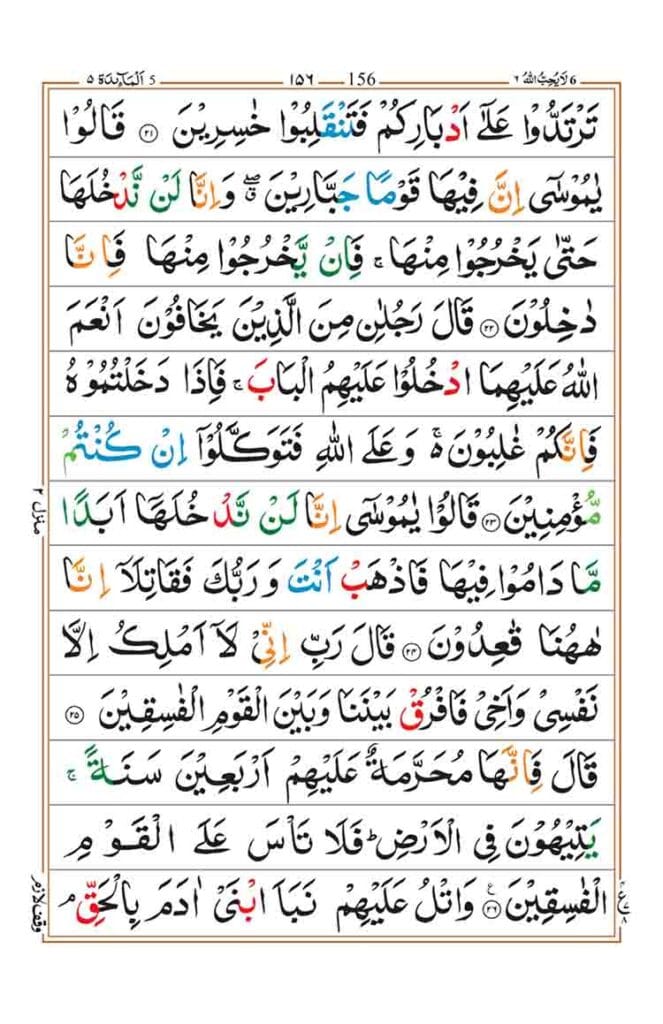 6 لَا يُحِبُّ اللّٰهُ ٦ 156 ١٥٦ 5 اَلْمَآئِدَة ٥
تَرْتَدُّوْا عَلٰٓى اَدْبَارِكُمْ فَتَنْقَلِبُوْا خٰسِرِيْنَ ﴿۲۱﴾ قَالُوْا
يٰمُوْسٰٓى اِنَّ فِيْهَا قَوْمًا جَبَّارِيْنَ ۖۗ وَاِنَّا لَنْ نَّدْخُلَهَا
حَتّٰى يَخْرُجُوْا مِنْهَا ۚ فَاِنْ يَّخْرُجُوْا مِنْهَا فَاِنَّا
دٰخِلُوْنَ ﴿۲۲﴾ قَالَ رَجُلٰنِ مِنَ الَّذِيْنَ يَخَافُوْنَ اَنْعَمَ
اللّٰهُ عَلَيْهِمَا ادْخُلُوْا عَلَيْهِمُ الْبَابَ ۚ فَاِذَا دَخَلْتُمُوْهُ
فَاِنَّكُمْ غٰلِبُوْنَ ەۚ وَعَلَى اللّٰهِ فَتَوَكَّلُوْٓا اِنْ كُنْتُمْ
مُّؤْمِنِيْنَ ﴿۲۳﴾ قَالُوْا يٰمُوْسٰٓى اِنَّا لَنْ نَّدْخُلَهَا اَبَدًا
مَّا دَامُوْا فِيْهَا فَاذْهَبْ اَنْتَ وَرَبُّكَ فَقَاتِلَآ اِنَّا
هٰهُنَا قٰعِدُوْنَ ﴿۲۴﴾ قَالَ رَبِّ اِنِّيْ لَآ اَمْلِكُ اِلَّا
نَفْسِيْ وَاَخِيْ فَافْرُقْ بَيْنَنَا وَبَيْنَ الْقَوْمِ الْفٰسِقِيْنَ ﴿۲۵﴾
قَالَ فَاِنَّهَا مُحَرَّمَةٌ عَلَيْهِمْ اَرْبَعِيْنَ سَنَةً ۚ
يَتِيْهُوْنَ فِى الْاَرْضِ ؕ فَلَا تَاْسَ عَلَى الْقَوْمِ
الْفٰسِقِيْنَ ﴿۲۶﴾ ع وَاتْلُ عَلَيْهِمْ نَبَاَ ابْنَىْ اٰدَمَ بِالْحَقِّ ۘ
منزل ۲
وقف لازم